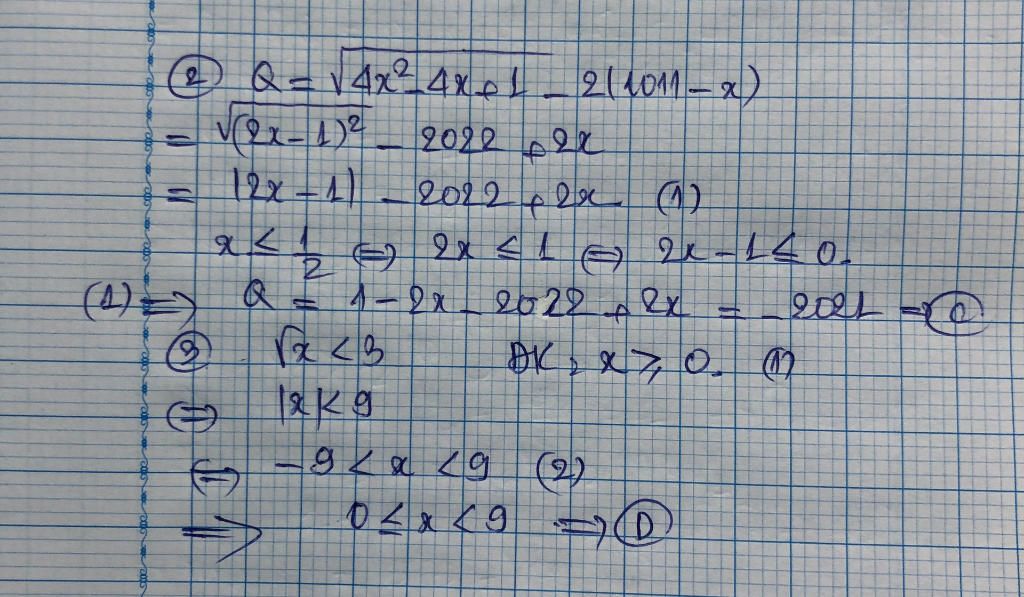 ② Q = √(4x² - 4x + 1) - 2(1011 - x)
= √((2x - 1)²) - 2022 + 2x
= |2x - 1| - 2022 + 2x (1)
x ≤ 1/2 ⇔ 2x ≤ 1 ⇔ 2x - 1 ≤ 0.
(1) ⇒ Q = 1 - 2x - 2022 + 2x = -2021 ⇒ Ⓒ
③ √x < 3 ĐK : x ≥ 0. (1)
⇔ |x| < 9
⇔ -9 < x < 9 (2)
⇒ 0 ≤ x < 9 ⇒ Ⓓ